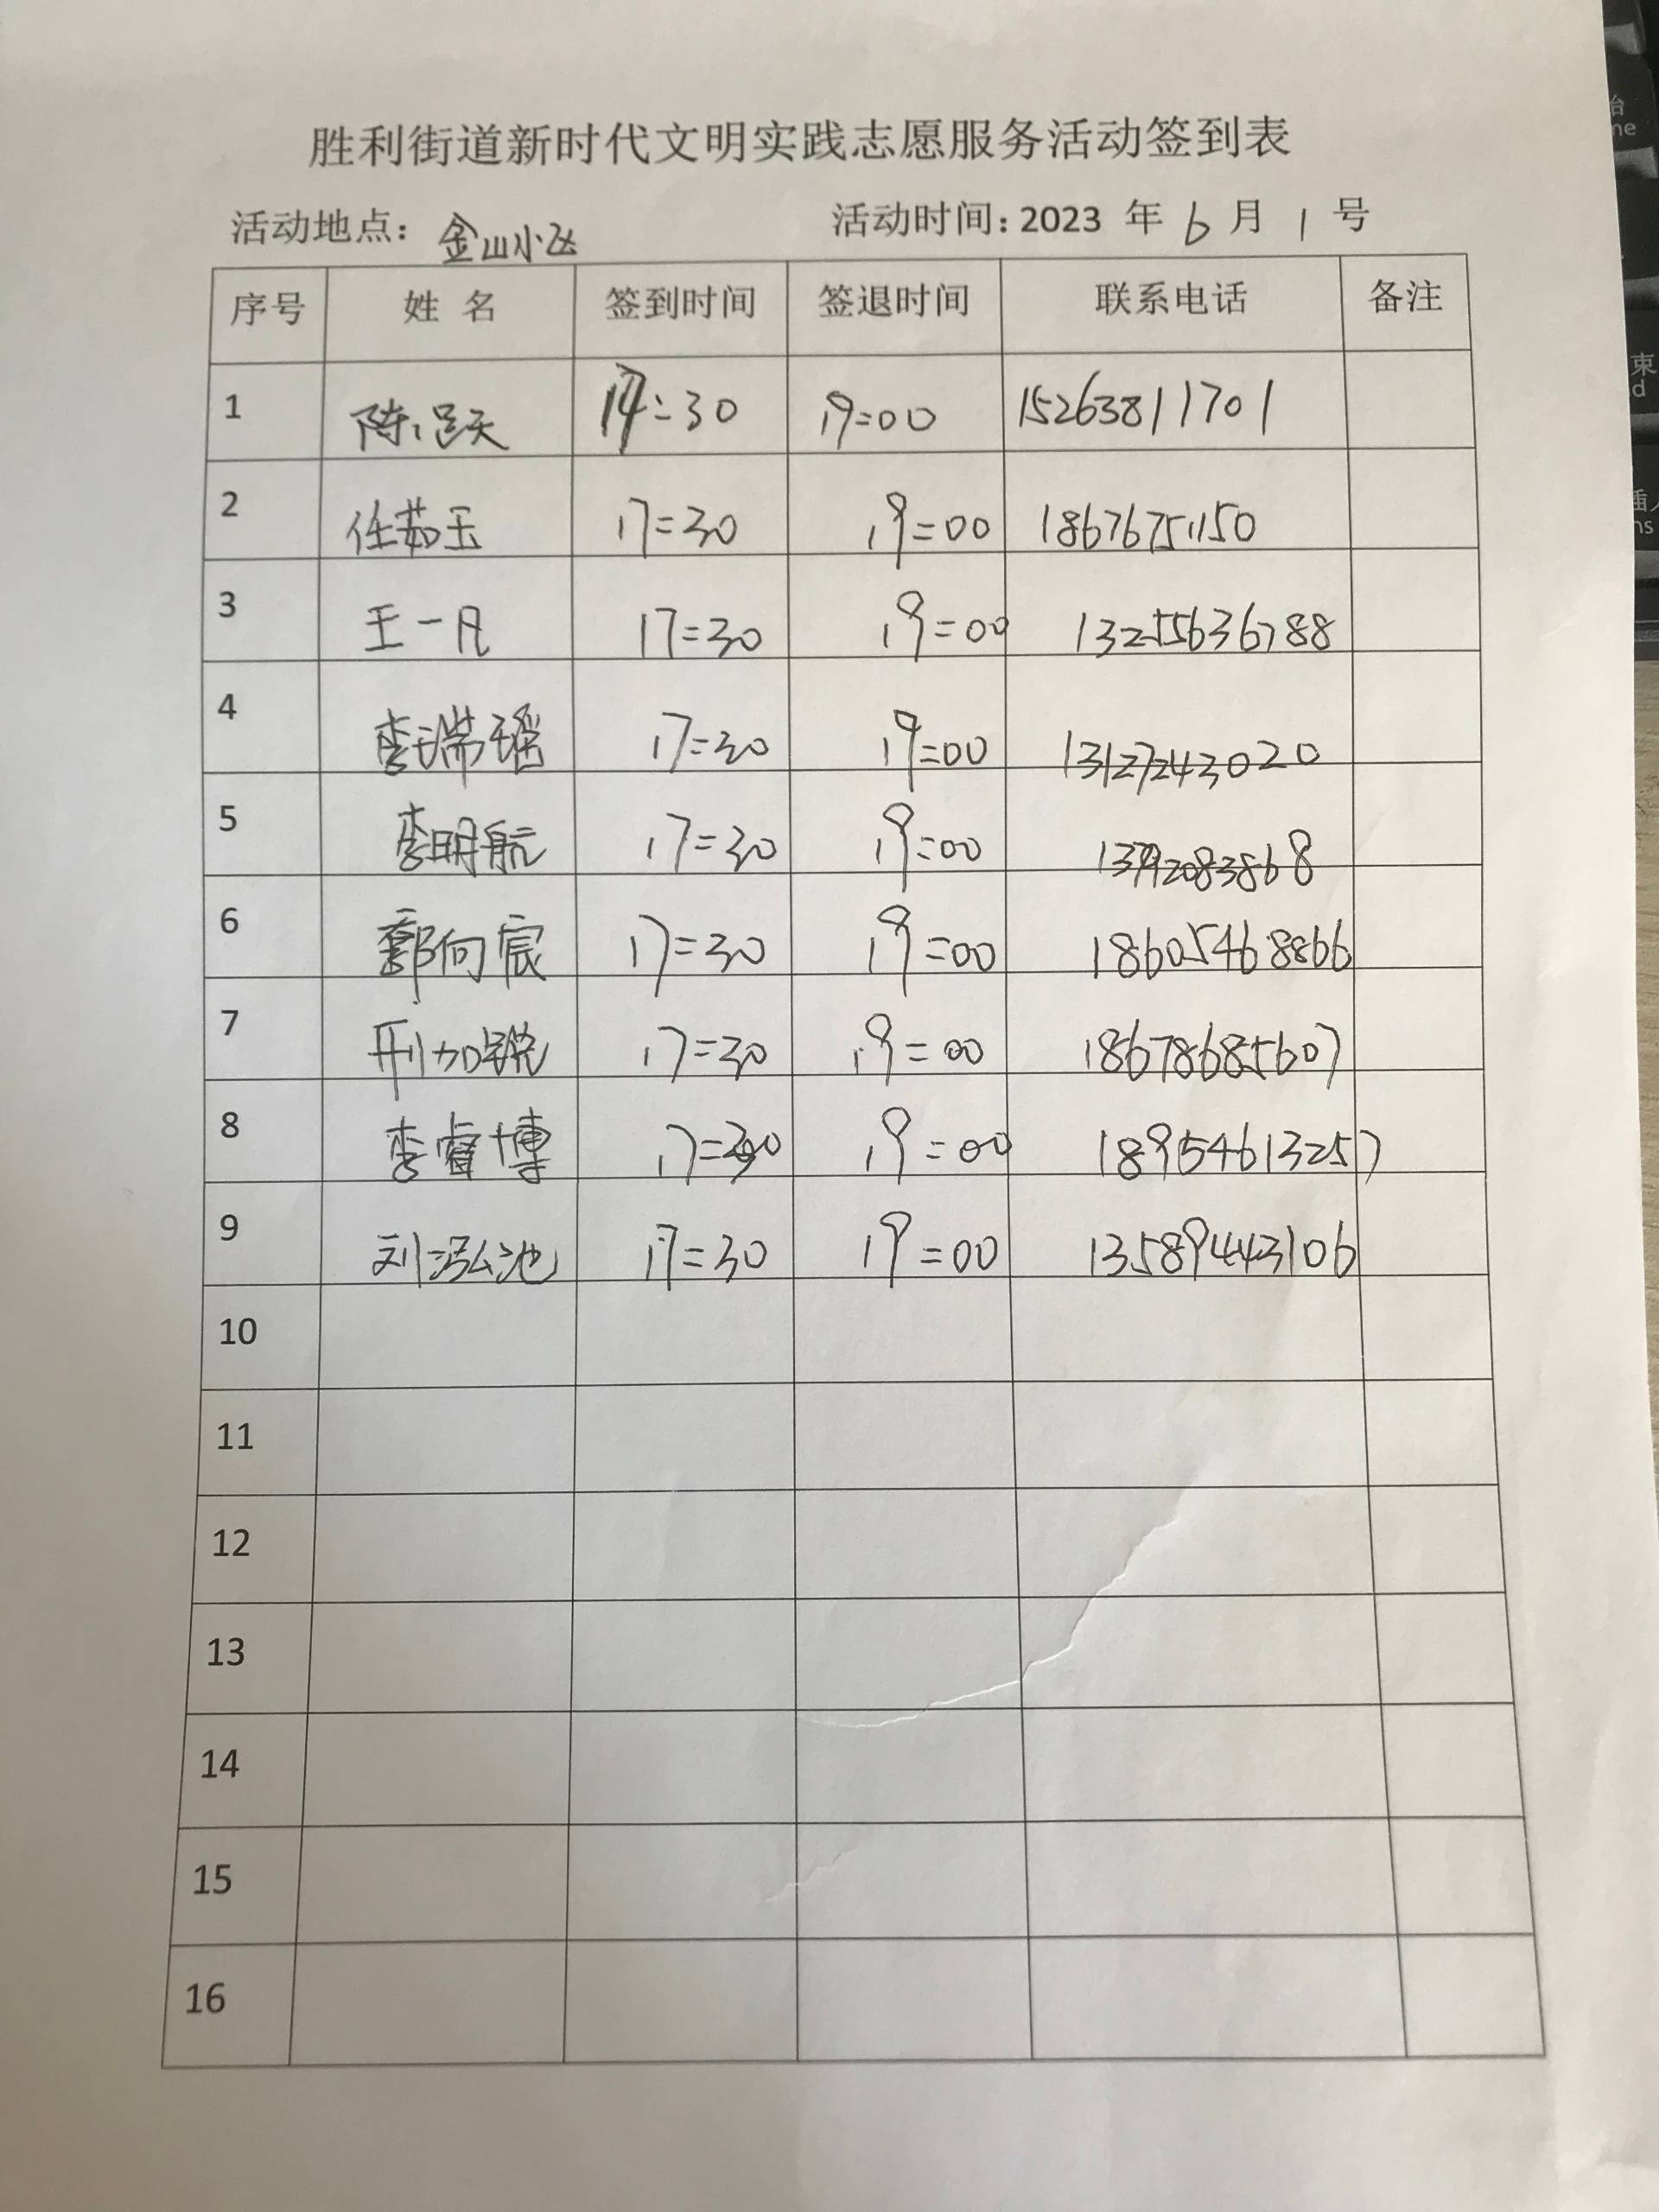 胜利街道新时代文明实践志愿服务活动签到表
活动地点: 金山小区 活动时间: 2023 年 6 月 1 号
序号 姓名 签到时间 签退时间 联系电话 备注
1 陈冠天 17:30 19=00 15263811701
2 任茹玉 17=30 19=00 18676751150
3 王一凡 17=30 19=00 13255636788
4 李瑞瑶 17=30 19=00 13127243020
5 李明航 17=30 19=00 13792083868
6 郭向宸 17=30 19=00 18605468866
7 刑加锐 17=30 19=00 18678685607
8 李睿博 17=30 19=00 18954613257
9 刘泓池 17=30 19=00 13589443106
10
11
12
13
14
15
16